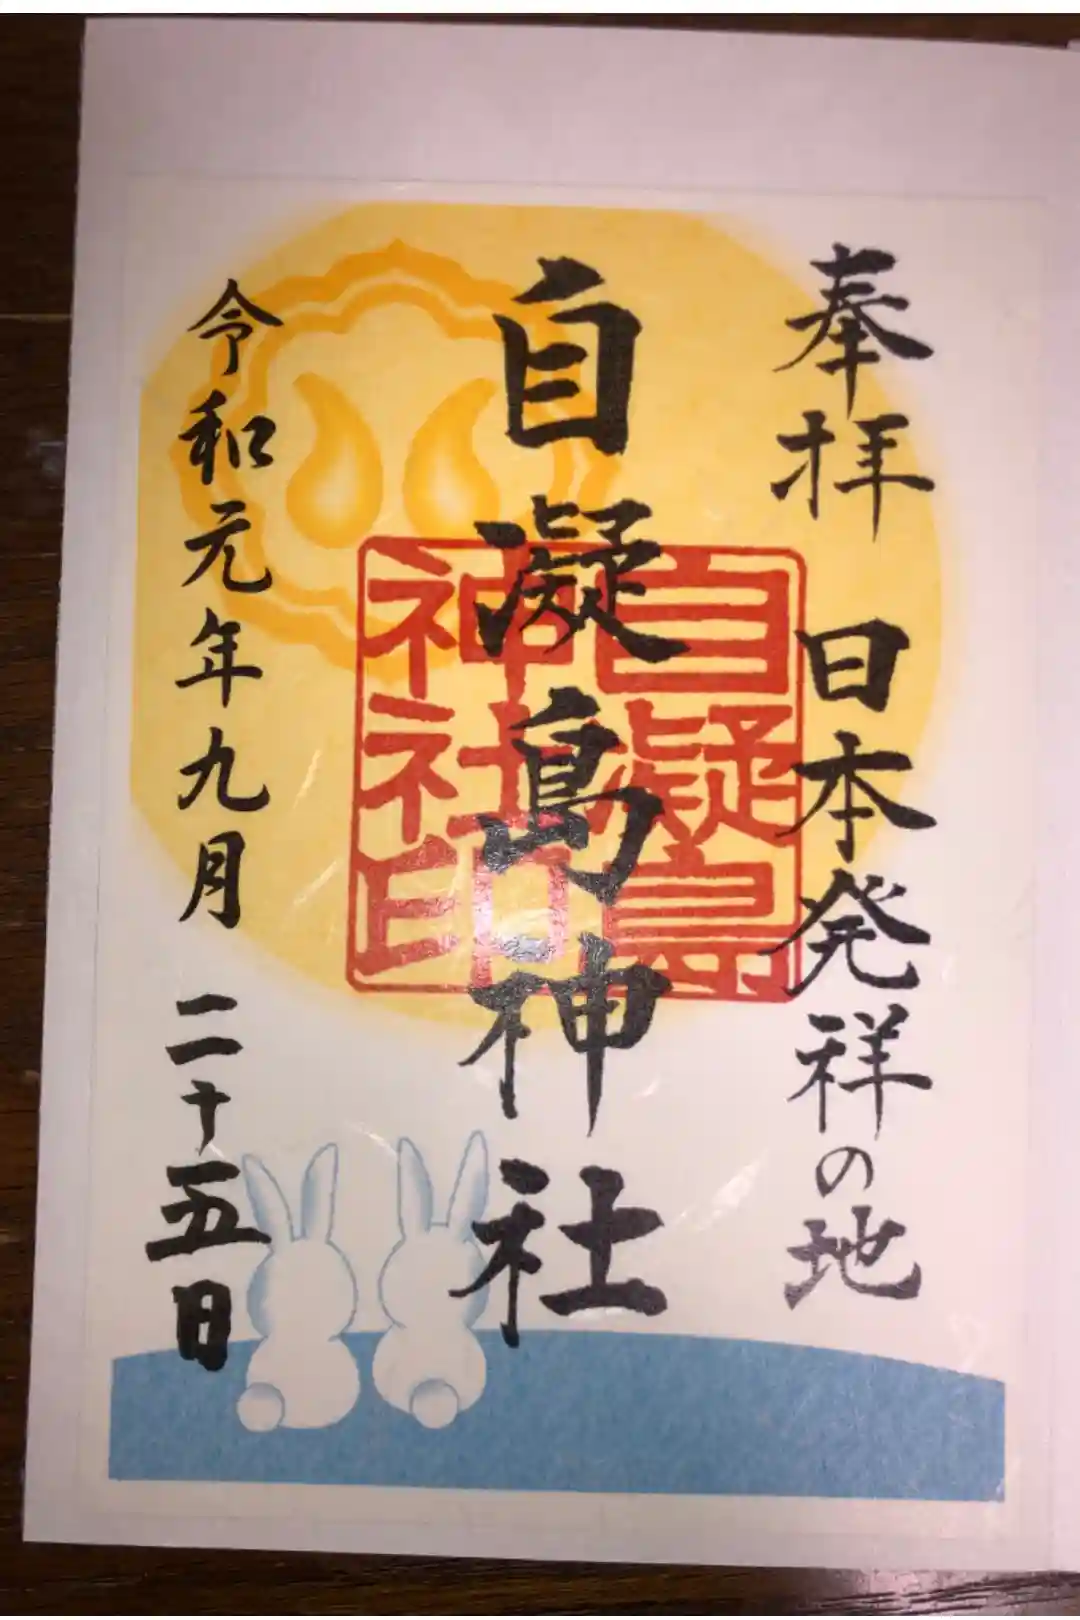 奉拝 日本発祥の地
自凝島神社
自凝島
神社印
令和元年九月二十五日